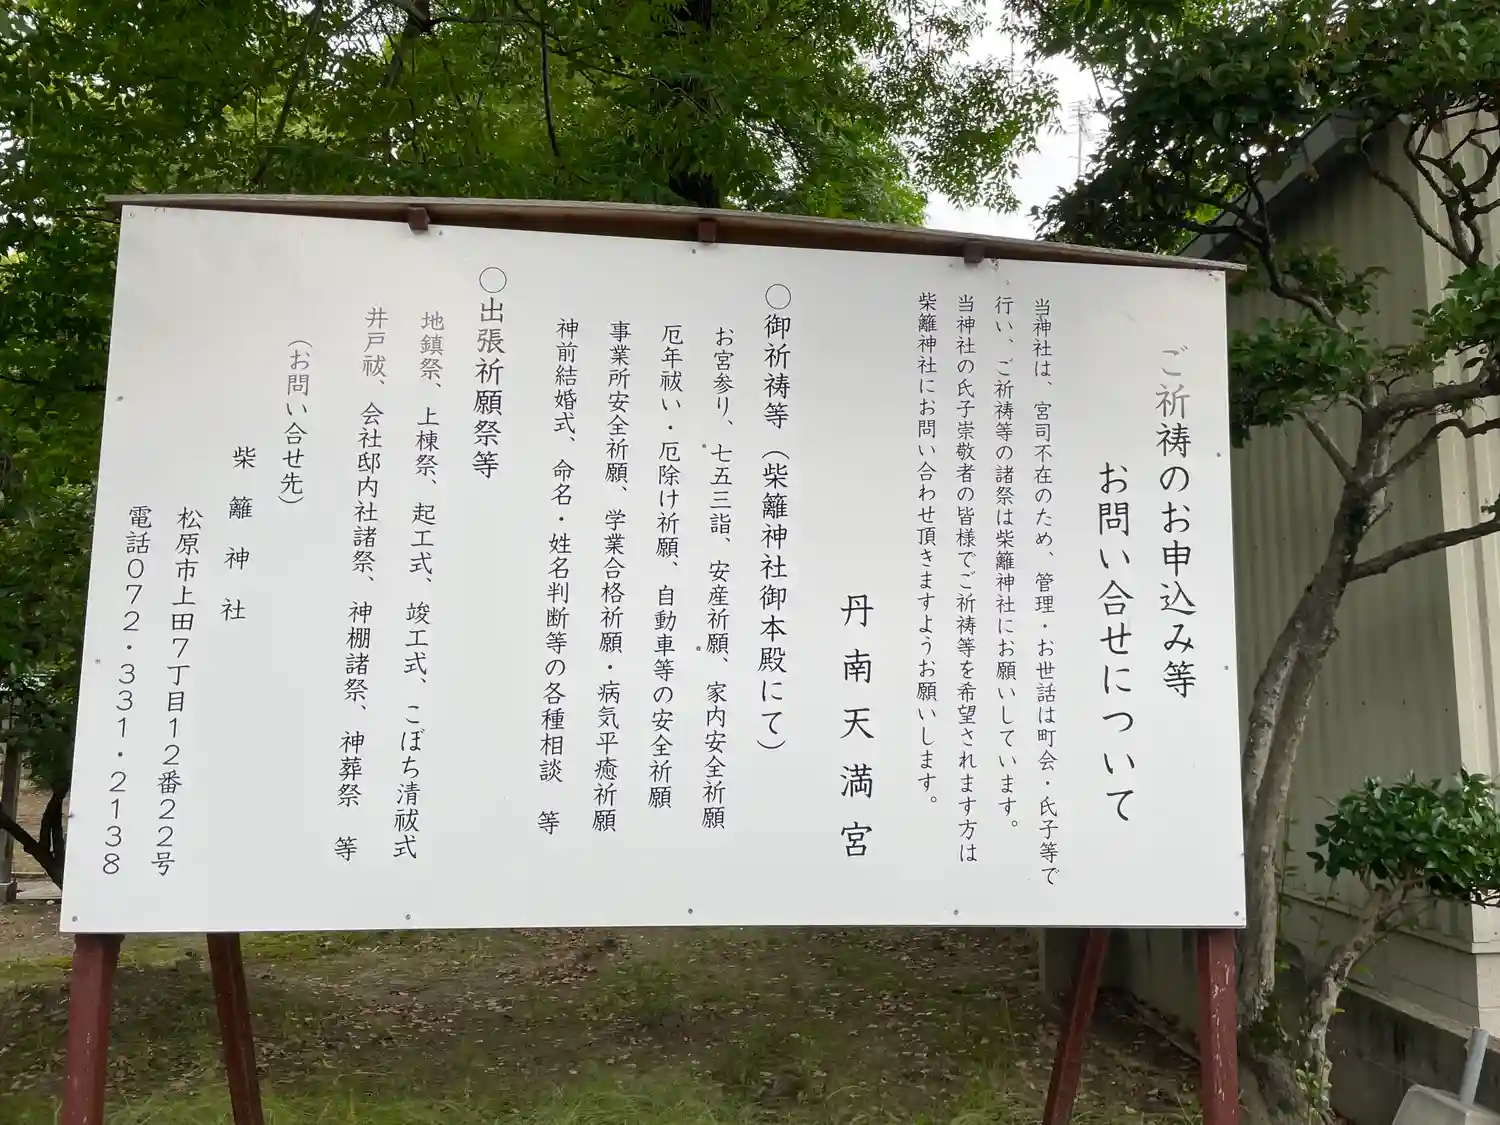 ご祈祷のお申込み等
お問い合せについて
当神社は、宮司不在のため、管理・お世話は町会・氏子等で
行い、ご祈祷等の諸祭は柴籬神社にお願いしています。
当神社の氏子崇敬者の皆様でご祈祷等を希望されます方は
柴籬神社にお問い合わせ頂きますようお願いします。
丹南天満宮
○御祈祷等（柴籬神社御本殿にて）
お宮参り、七五三詣、安産祈願、家内安全祈願
厄年祓い・厄除け祈願、自動車等の安全祈願
事業所安全祈願、学業合格祈願・病気平癒祈願
神前結婚式、命名・姓名判断等の各種相談 等
○出張祈願祭等
地鎮祭、上棟祭、起工式、竣工式、こぼち清祓式
井戸祓、会社邸内社諸祭、神棚諸祭、神葬祭 等
（お問い合せ先）
柴籬神社
松原市上田7丁目12番22号
電話072・331・2138